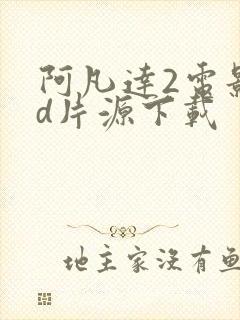 阿凡達2電影
d片源下載
地主家沒有魚